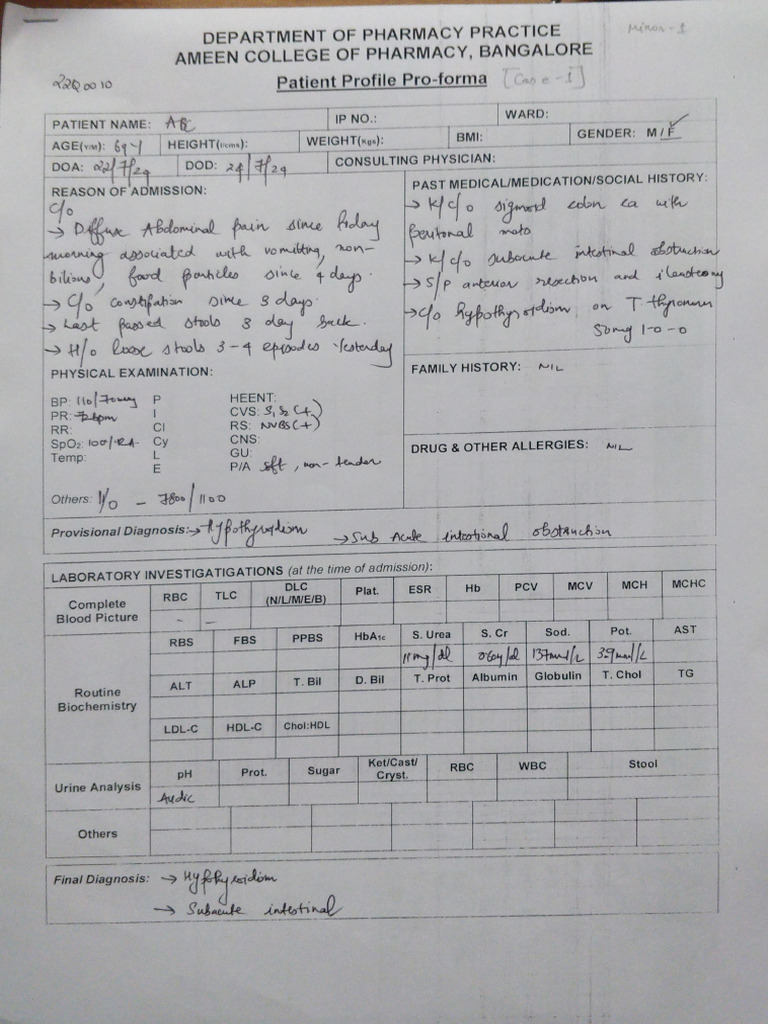 DEPARTMENT OF PHARMACY PRACTICE
Minor - 1
AMEEN COLLEGE OF PHARMACY, BANGALORE
22Q0010
Patient Profile Pro-forma [Case - 1]
PATIENT NAME: ABC IP NO.: WARD:
AGE(Y/M): 69 y HEIGHT(I/cms): WEIGHT(Kgs): BMI: GENDER: M / F ✓
DOA: 22/7/24 DOD: 24/7/24 CONSULTING PHYSICIAN:
REASON OF ADMISSION:
C/o
→ Diffuse Abdominal pain since friday
morning associated with vomitting, non-
bilious, food particles since 4 days.
→ C/o constipation since 3 days.
→ Last passed stools 3 day back.
→ H/o loose stools 3-4 episodes Yesterday
PAST MEDICAL/MEDICATION/SOCIAL HISTORY:
→ K/c/o sigmoid colon ca with
peritonal mets
→ K/c/o subacute intestinal obstruction
→ S/P anterior resection and ileostomy
→ c/o hypothyroidism on T. thyronorm
50mg 1-0-0
PHYSICAL EXAMINATION:
BP: 110/70mmHg P HEENT:
PR: 72bpm I CVS: S1S2 (+)
RR: Cl RS: NVBS (+)
SpO2: 100% RA Cy CNS:
Temp: L GU:
E P/A soft, non-tender
Others: I/O - 7800/1100
FAMILY HISTORY: NIL
DRUG & OTHER ALLERGIES: NIL
Provisional Diagnosis: → Hypothyroidism → Sub Acute intestional obstruction
LABORATORY INVESTIGATIGATIONS (at the time of admission):
Complete Blood Picture RBC TLC DLC (N/L/M/E/B) Plat. ESR Hb PCV MCV MCH MCHC
- -
Routine Biochemistry RBS FBS PPBS HbA1c S. Urea S. Cr Sod. Pot. AST
11mg/dl 137mmol/L 3.9mmol/L
ALT ALP T. Bil D. Bil T. Prot Albumin Globulin T. Chol TG
LDL-C HDL-C Chol:HDL
Urine Analysis pH Prot. Sugar Ket/Cast/Cryst. RBC WBC Stool
Acidic
Others
Final Diagnosis: → Hypothyroidism
→ Subacute intestinal